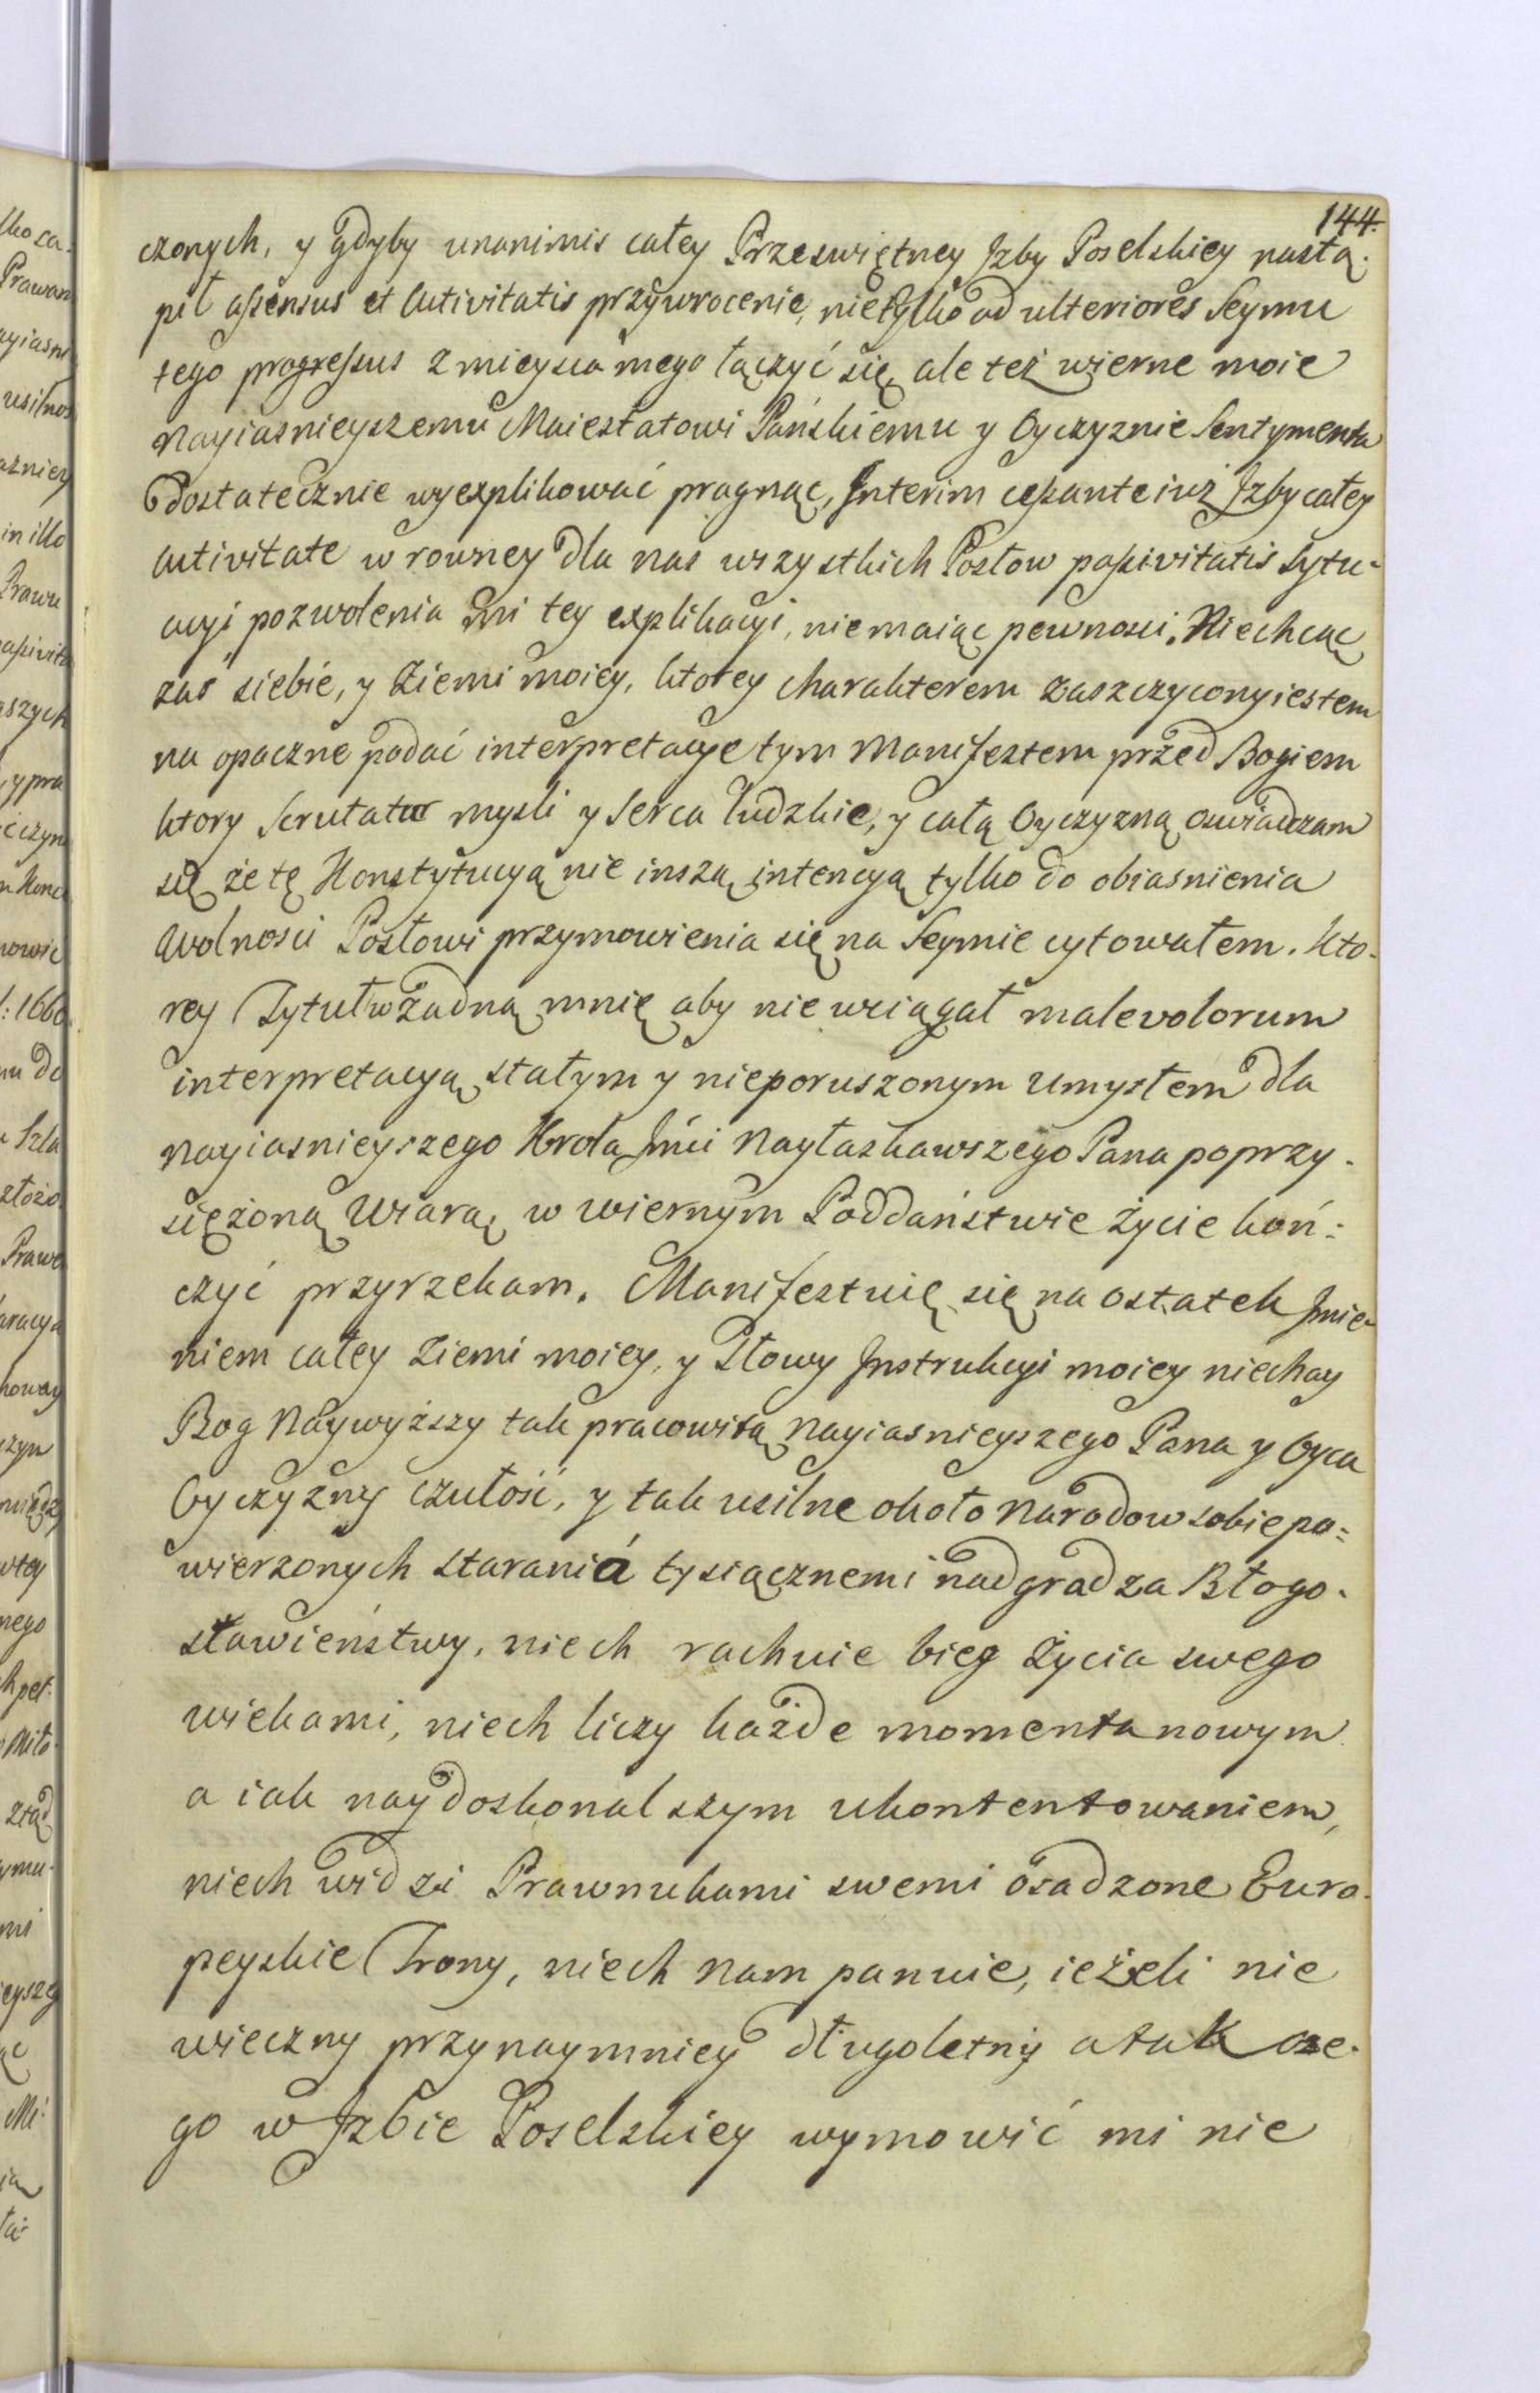 144.
czonych, y gdyby unanimis całey Przeswiętney Jzby Poselskiey nastą-
pił assensus et Activitatis przywrocenie, nietylko ad ulteriores Seymu
tego progressus z mieysca mego łączyć się, ale też wierne moie
Nayiasnieyszemu Maiestatowi Pańskiemu y Oyczyznie Sentymenta
dostatecznie wyexplikować pragnąc, Jnterim cessante iuż Jzby całey
Activitate w rowney dla nas wszystkich Posłow passivitatis Sytu-
acyi pozwolenia mi tey explikacyi, niemaiąc pewnosci. Niechcąc
zas siebie, y Ziemi moiey, ktorey charakterem zaszczycony iestem
na opaczne podać interpretacye tym Manifestem przed Bogiem
ktory Scrutatur mysli y Serca ludzkie, y całą Oyczyzną oswiadczam
się że tę Konstytucyą nie inszą intencyą tylko do obiasnienia
Wolnosci Posłowi przymowienia się na Seymie cytowałem. Kto-
rey Tytuł w żadną mnię aby nie wciągał malevolorum
interpretacyą, stałym y nieporuszonym umysłem dla
Nayiasnieyszego Krola Jmci Nayłaskawszego Pana poprzy-
siężoną Wiarą w wiernym Poddaństwie życie koń-
czyć przyrzekam. Manifestuię się na ostatek Jmie-
niem całey Ziemi moiey, y Słowy Jnstrukcyi moiey niechay
Bog Naywyższy tak pracowitą Nayiasnieyszego Pana y Oyca
Oyczyzny czułość, y tak usilne około Narodow sobie po-
wierzonych starania tysiącznemi nadgradza Błogo-
sławieństwy, niech rachuie bieg Życia swego
wiekami, niech liczy każde momenta nowym
a iak naydoskonalszym ukontentowaniem,
niech widzi Prawnukami swemi osadzone Euro-
peyskie Trony, niech nam panuie, ieżeli nie
wieczny przynaymniey długoletny a tak cze-
go w Jzbie Poselskiey wymowić mi nie